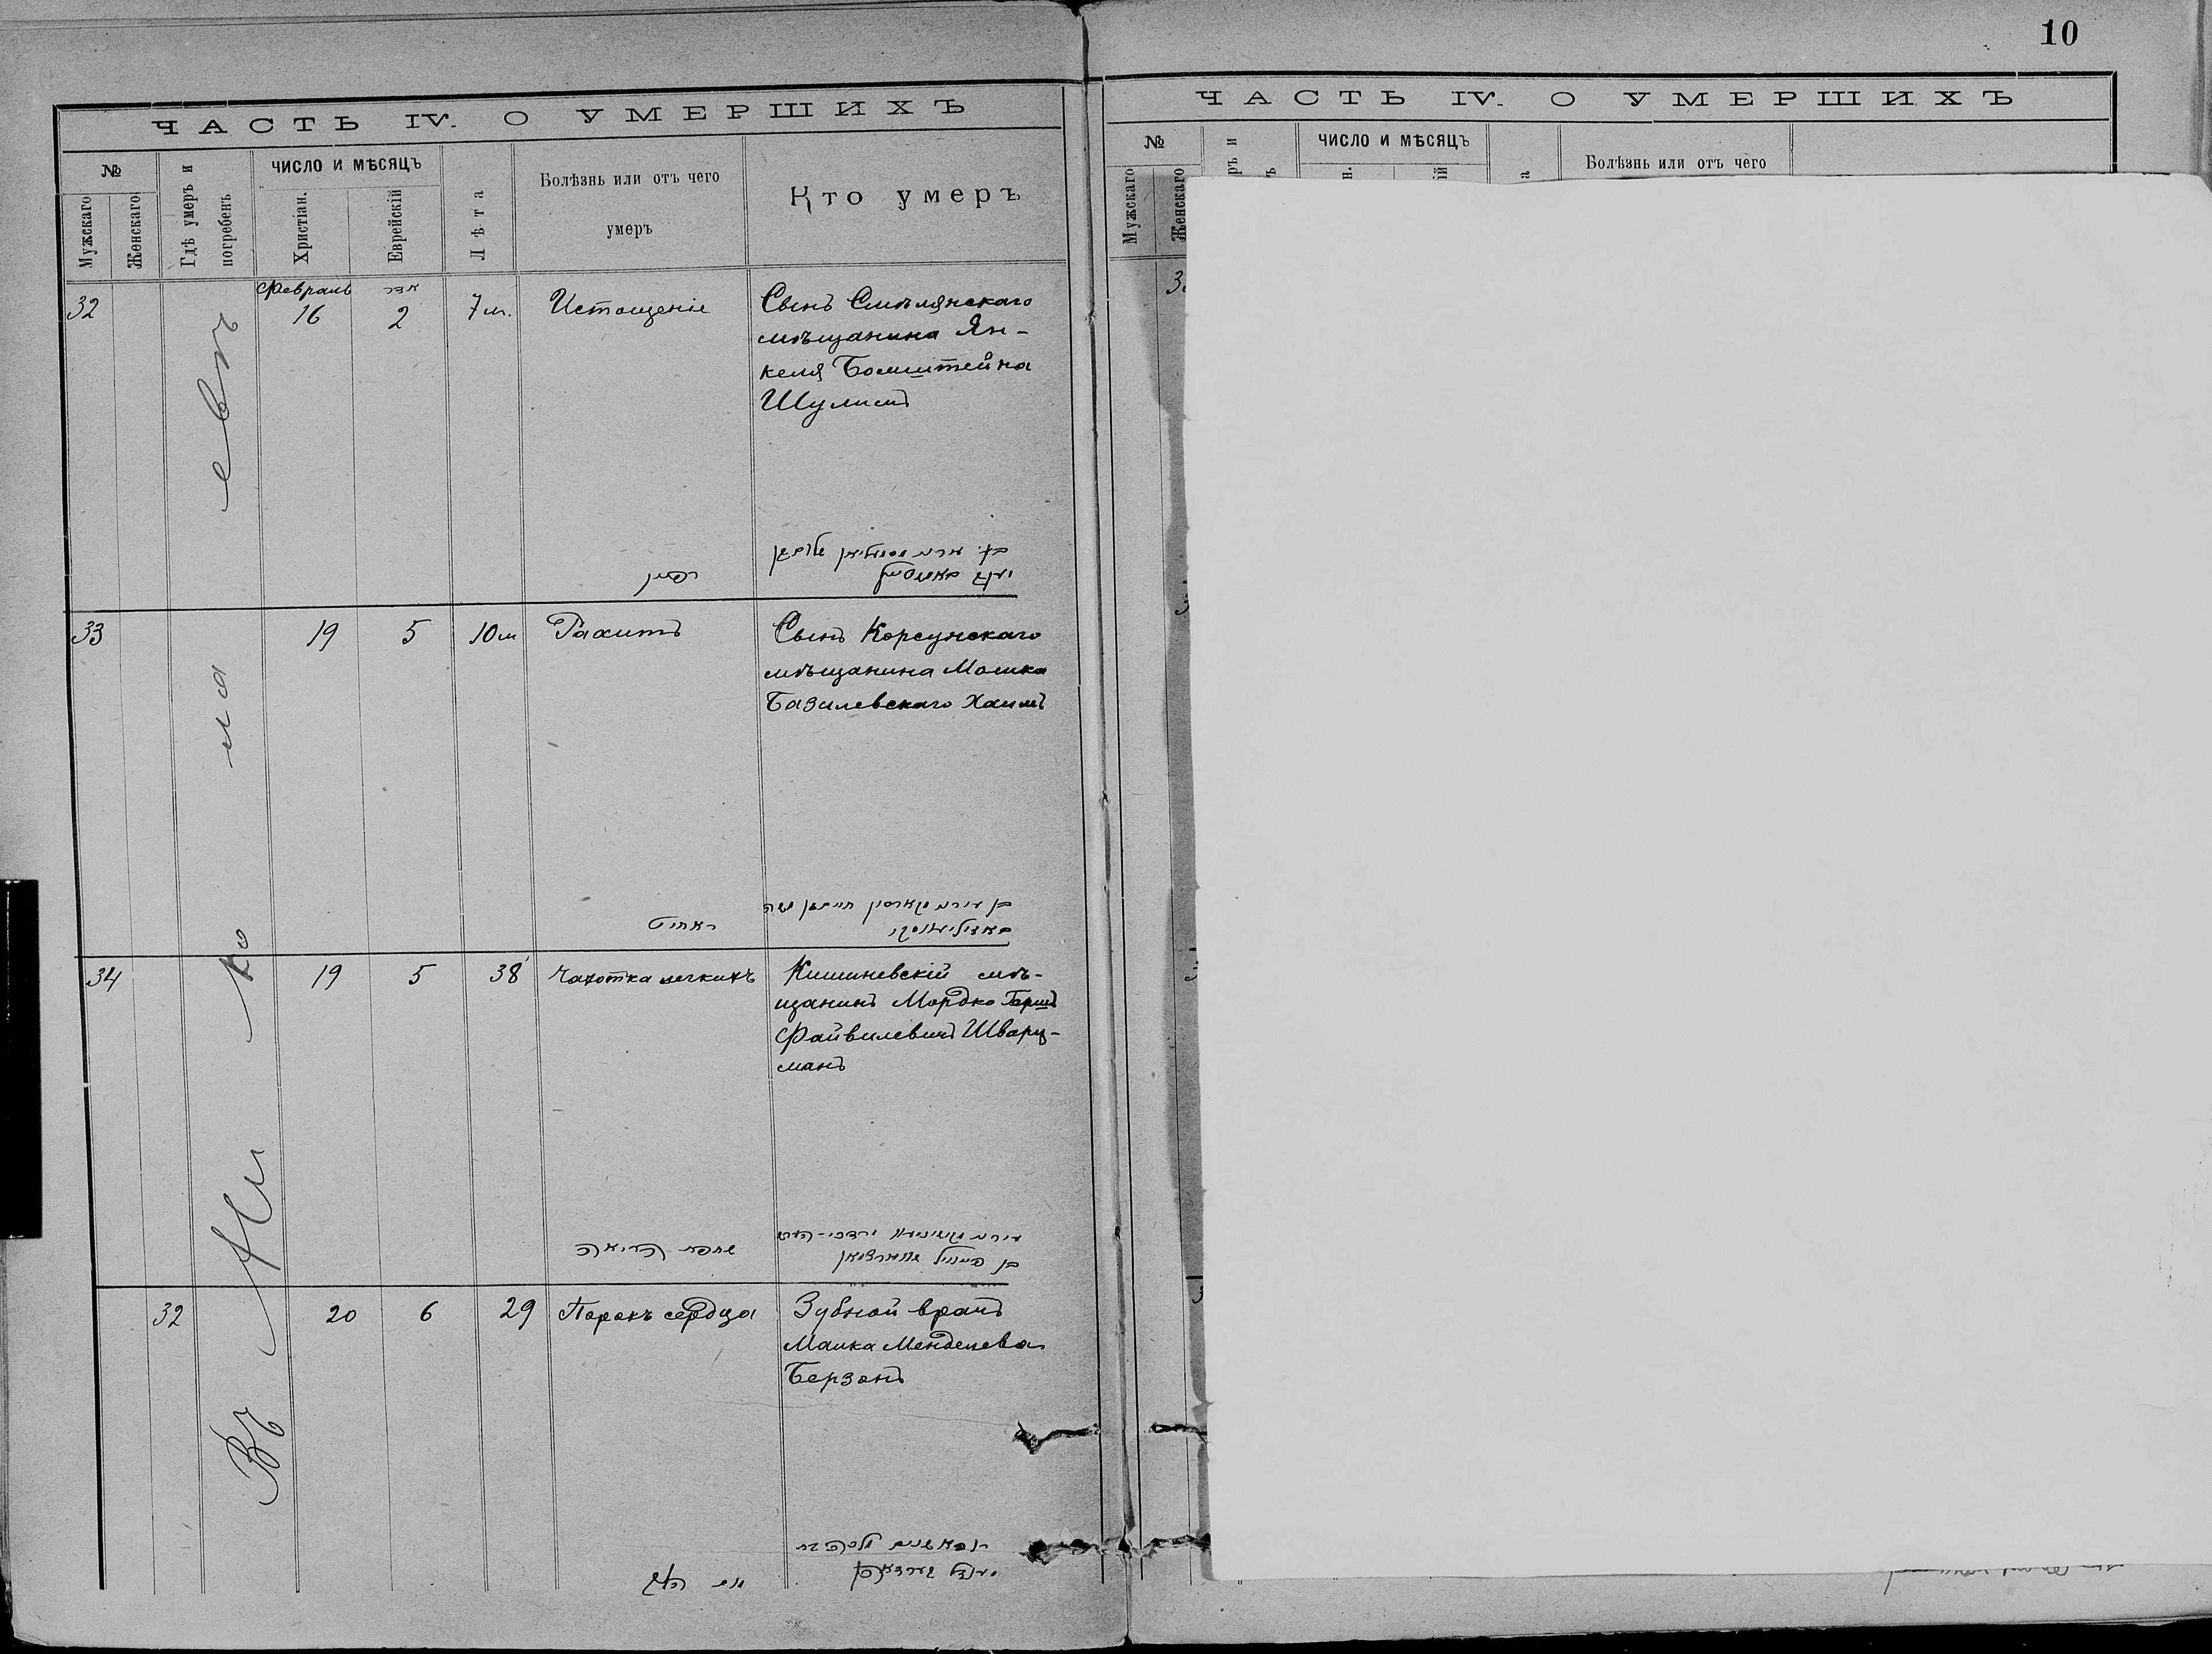 10
ЧАСТЬ IV. О УМЕРШИХЪ
№
Мужскаго
Женскаго
Гдѣ умеръ и
погребенъ
ЧИСЛО И МѢСЯЦЪ
Христіан.
Еврейскій
Лѣта
Болѣзнь или отъ чего
умеръ
Кто умеръ
Въ Николаевѣ
32
Февраль
16
אדר
2
7 м.
Истощеніе
Сынъ Смѣлянскаго
мѣщанина Ян-
келя Бомштейна
Шулимъ
33
19
5
10 м
Рахитъ
Сынъ Корсунскаго
мѣщанина Мошка
Базилевскаго Хаимъ
ראחיט
34
19
5
38
Чахотка легкихъ
Кишиневскій мѣ-
щанинъ Мордко Гершъ
Файвилевичъ Шварц-
манъ
שחפת הריאה
32
20
6
29
Порокъ сердца
Зубной врачъ
Малка Менделева
Берзонъ
ЧАСТЬ IV. О УМЕРШИХЪ
№
Мужскаго
Женскаго
ЧИСЛО И МѢСЯЦЪ
Болѣзнь или отъ чего